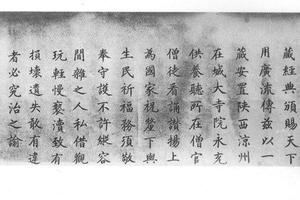 藏經典頒賜天下
用廣流傳茲以一
藏安置陝西涼州
在城大寺院永充
供養聽所在僧官
僧徒看誦讚揚上
為國家祝釐下與
生民祈福務須敬
奉守護不許縱容
閒雜之人私借觀
玩輕慢褻瀆致有
損壞遺失敢有違
者必究治之諭